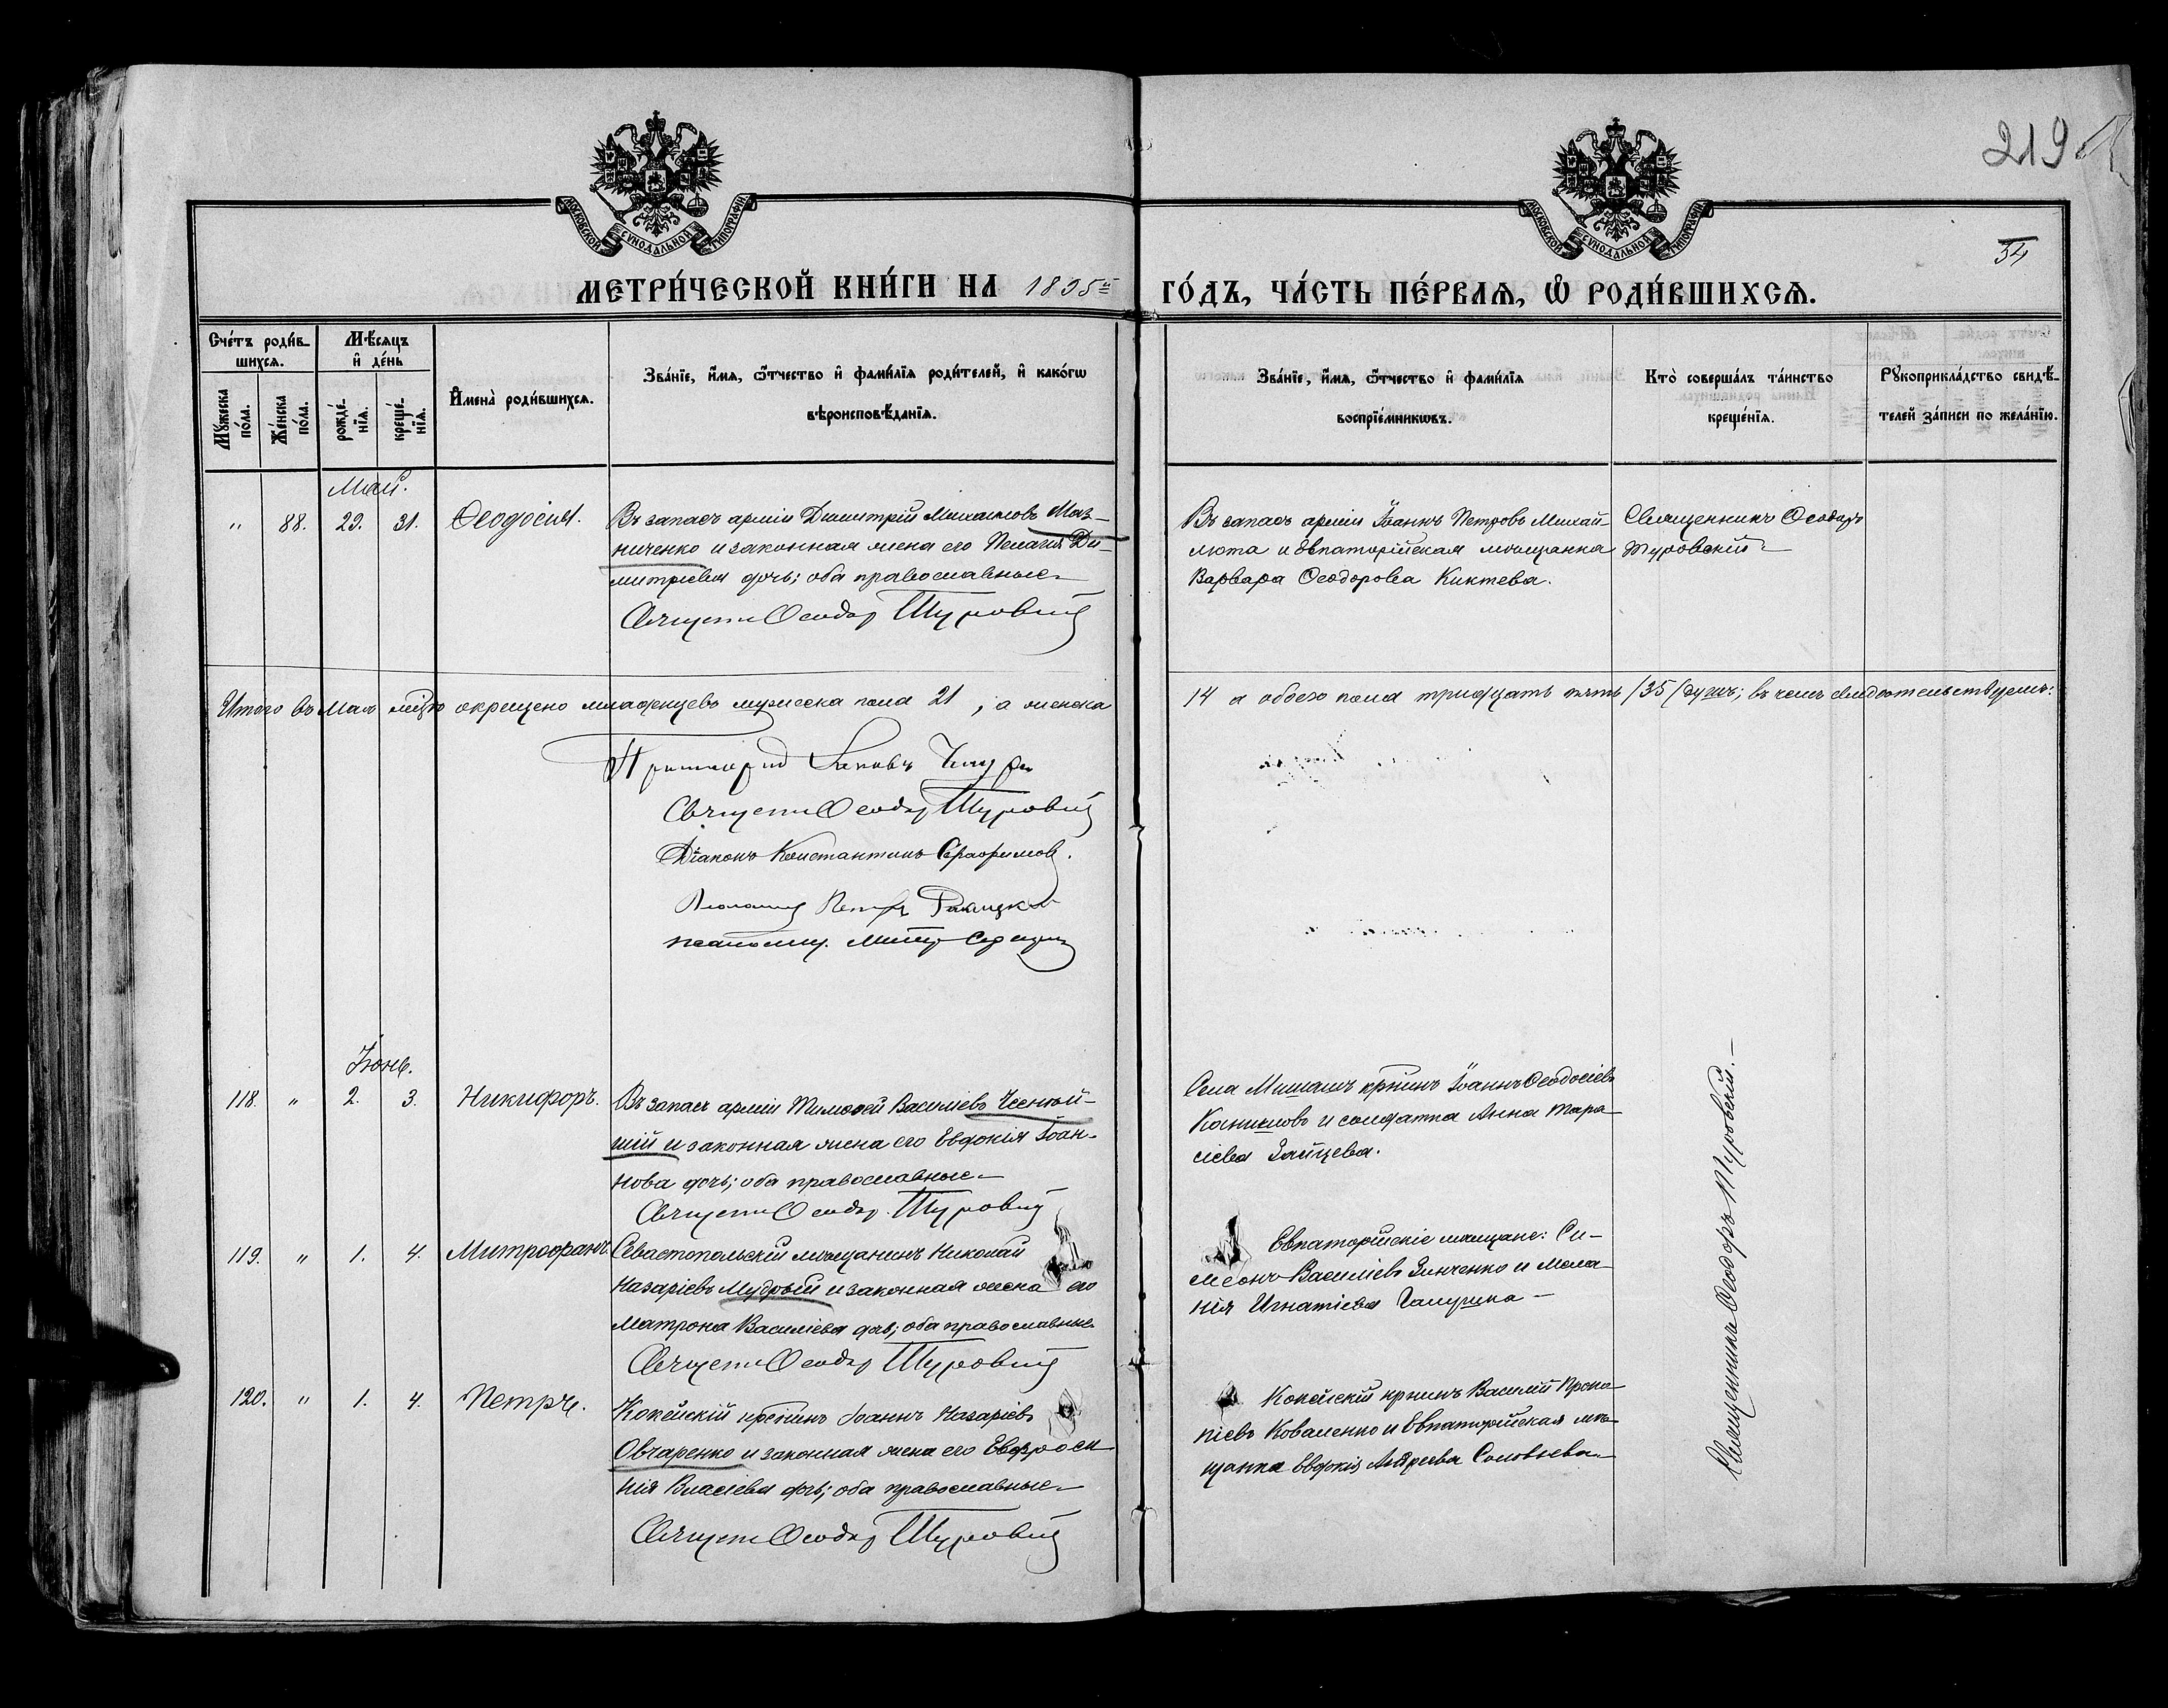 219
34
МОСКОВСКОЙ СѴНОДАЛЬНОЙ ТИПОГРАФІИ
МОСКОВСКОЙ СѴНОДАЛЬНОЙ ТИПОГРАФІИ
МЕТРИ́ЧЕСКОЙ КНИ́ГИ НА 1895й ГО́ДЪ, ЧА́СТЬ ПЕ́РВАѦ, Ѡ҆ РОДИ́ВШИХСѦ.
Сче́тъ роди́в-
шихсѧ.
Мꙋ́жеска по́ла.
Же́нска по́ла.
Мѣ́сѧцъ
и҆ де́нь
рожде́-
нїѧ.
креще́-
нїѧ.
И҆мена̀ роди́вшихсѧ.
Зва́нїе, и҆́мѧ, ѻ҆́тчество и҆ фами́лїѧ роди́телей, и҆ како́гѡ
вѣроисповѣ́данїѧ.
Зва́нїе, и҆́мѧ, ѻ҆́тчество и҆ фами́лїѧ
воспрїе́мникѡвъ.
Кто̀ соверша́лъ та́инство
креще́нїѧ.
Рꙋкоприкла́дство свидѣ́-
телей за́писи по жела́нїю.
Май.
" 88. 29. 31. Ѳеодосія.
Въ запасѣ арміи Димитрій Михаиловъ Маз-
ниченко и законная жена его Пелагія Ди-
митріева дочь; оба православные
Священ Ѳеодор Туровскій
Въ запасѣ арміи Іоаннъ Петровъ Михай-
люта и Евпаторійская мѣщанка
Варвара Ѳеодорова Киктева.
Священникъ Ѳеодоръ
Туровскій
Итого въ Маѣ мцѣ окрещено младенцевъ мужеска пола 21, а женска 14 а обоего пола тридцать пять /35/ душъ; въ чемъ свидѣтельствуемъ:
Протоіерей Іаковъ
Священ Ѳеодор Туровскій
Діаконъ Константинъ Серафимов.
Псаломщ Петръ
псаломщ.
Іюнь.
118. " 2. 3. Никифоръ.
Въ запасѣ арміи Тимоѳей Василіевъ Чесной-
шій и законная жена его Евдокія Іоан-
нова дочь; оба православные
Священ Ѳеодор Туровскій
Села кр̃нинъ Іоаннъ Ѳеодосіевъ
и солдатка Анна Тара-
сіева Зайцева.
119. " 1. 4. Митрофанъ
Севастопольскій мѣщанинъ Николай
Назаріевъ Мудрый и законная жена его
Матрона Василіева дочь; оба православные
Священ Ѳеодор Туровскій
Евпаторійскіе мѣщане: Си-
меонъ Василіевъ Зинченко и Мела-
нія Игнатіева
120. " 1. 4. Петръ.
Кокейскій кр̃нинъ Іоаннъ Назаріевъ
Овчаренко и законная жена его Евфроси
нія Власіева дочь; оба православные
Священ Ѳеодор Туровскій
Кокейскій кр̃нинъ Василій Проко-
піевъ Коваленко и Евпаторійская мѣ-
щанка Евдокія Андреева Соловьева
Священникъ Ѳеодоръ Туровскій.